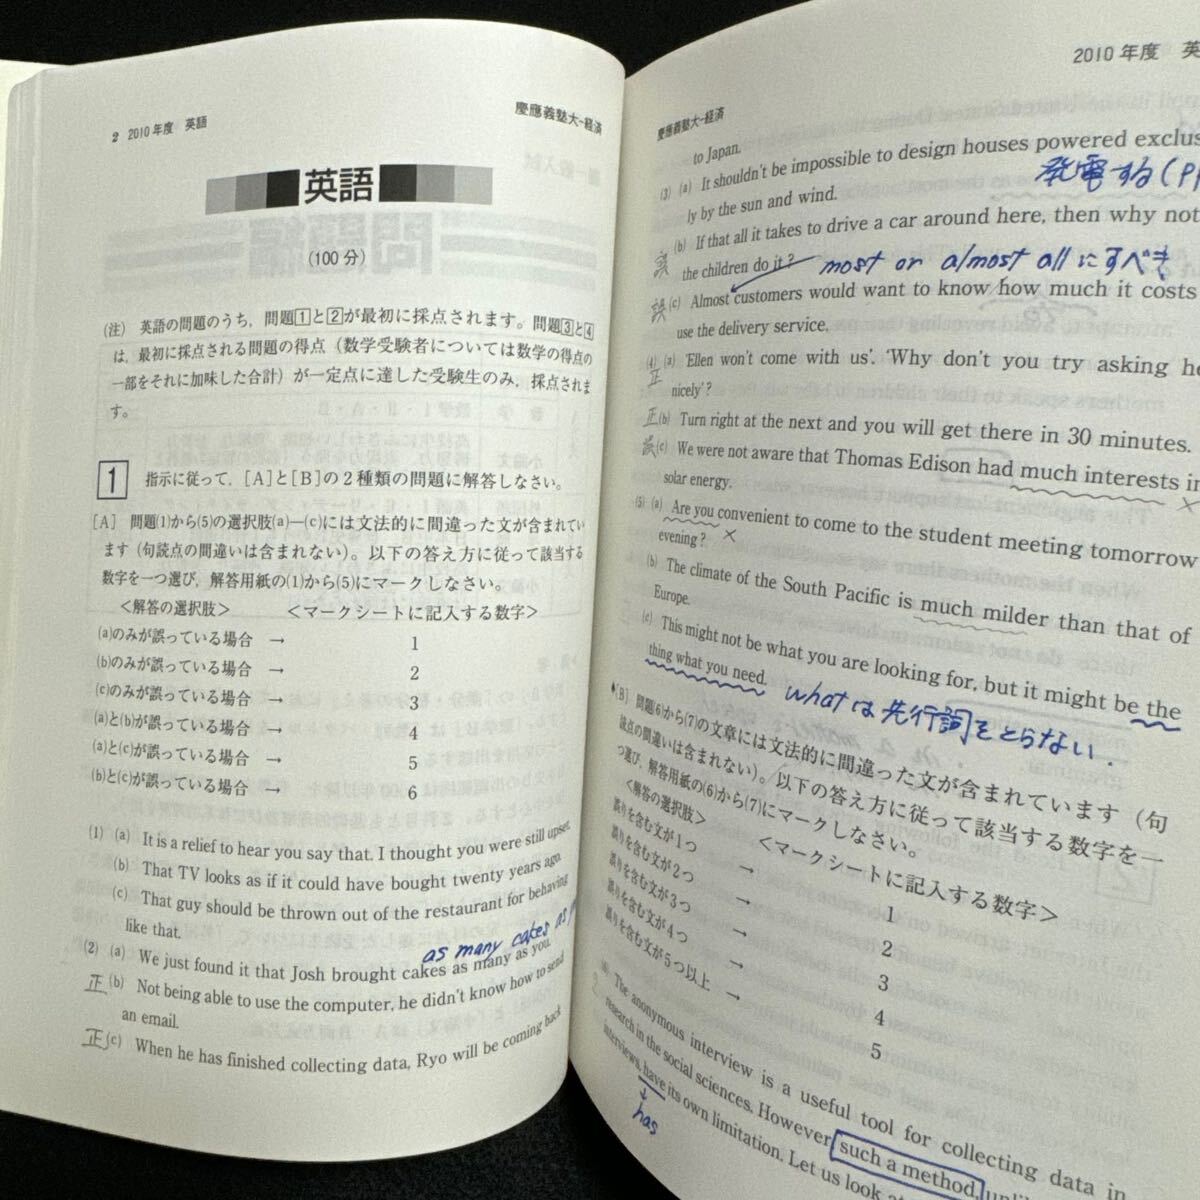 2 2010年度 英語
慶應義塾大-経済
英語
(100分)
(注) 英語の問題のうち，問題1と2が最初に採点されます。問題3と4
は、最初に採点される問題の得点（数学受験者については数学の得点の
一部をそれに加味した合計）が一定点に達した受験生のみ，採点されま
す。
1 指示に従って，[A]と[B]の2種類の問題に解答しなさい。
[A] 問題(1)から(5)の選択肢(a)―(c)には文法的に間違った文が含まれてい
ます（句読点の間違いは含まれない）。以下の答え方に従って該当する
数字を一つ選び，解答用紙の(1)から(5)にマークしなさい。
<解答の選択肢> <マークシートに記入する数字>
(a)のみが誤っている場合 → 1
(b)のみが誤っている場合 → 2
(c)のみが誤っている場合 → 3
(a)と(b)が誤っている場合 → 4
(a)と(c)が誤っている場合 → 5
(b)と(c)が誤っている場合 → 6
(1) (a) It is a relief to hear you say that. I thought you were still upset.
(b) That TV looks as if it could have bought twenty years ago.
(c) That guy should be thrown out of the restaurant for behaving
like that.
as many cakes as
(2) (a) We just found it that Josh brought cakes as many as you.
正 (b) Not being able to use the computer, he didn't know how to send
an email.
正 (c) When he has finished collecting data, Ryo will be coming back
2010年度 英
慶應義塾大-経済
to Japan.
(3) (a) It shouldn't be impossible to design houses powered exclus
発電する
ly by the sun and wind.
(b) If that all it takes to drive a car around here, then why not
誤 the children do it?
most or almost all にすべき
誤 (c) Almost customers would want to know how much it costs
use the delivery service.
(4) (a) 'Ellen won't come with us'. 'Why don't you try asking he
正 nicely'?
正 (b) Turn right at the next and you will get there in 30 minutes.
誤 (c) We were not aware that Thomas Edison had much interests in
solar energy.
(5) (a) Are you convenient to come to the student meeting tomorrow
evening?
(b) The climate of the South Pacific is much milder than that of
Europe.
(c) This might not be what you are looking for, but it might be the
thing what you need.
what は先行詞をとらない．
[B] 問題(6)から(7)の文章には文法的に間違った文が含まれています（句
読点の間違いは含まれない）。以下の答え方に従って該当する数字を一
つ選び，解答用紙の(6)から(7)にマークしなさい。
<解答の選択肢> <マークシートに記入する数字>
誤りを含む文が1つ → 1
誤りを含む文が2つ → 2
誤りを含む文が3つ → 3
誤りを含む文が4つ → 4
誤りを含む文が5つ以上 → 5
(6) The anonymous interview is a useful tool for collecting data in
research in the social sciences. However such a method,
interviews, have its own limitation. Let us look
has